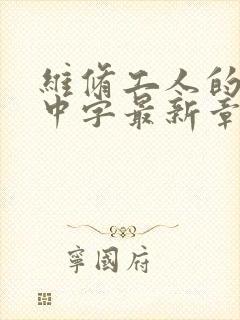 維脩工人的
中字最新章
寧國府